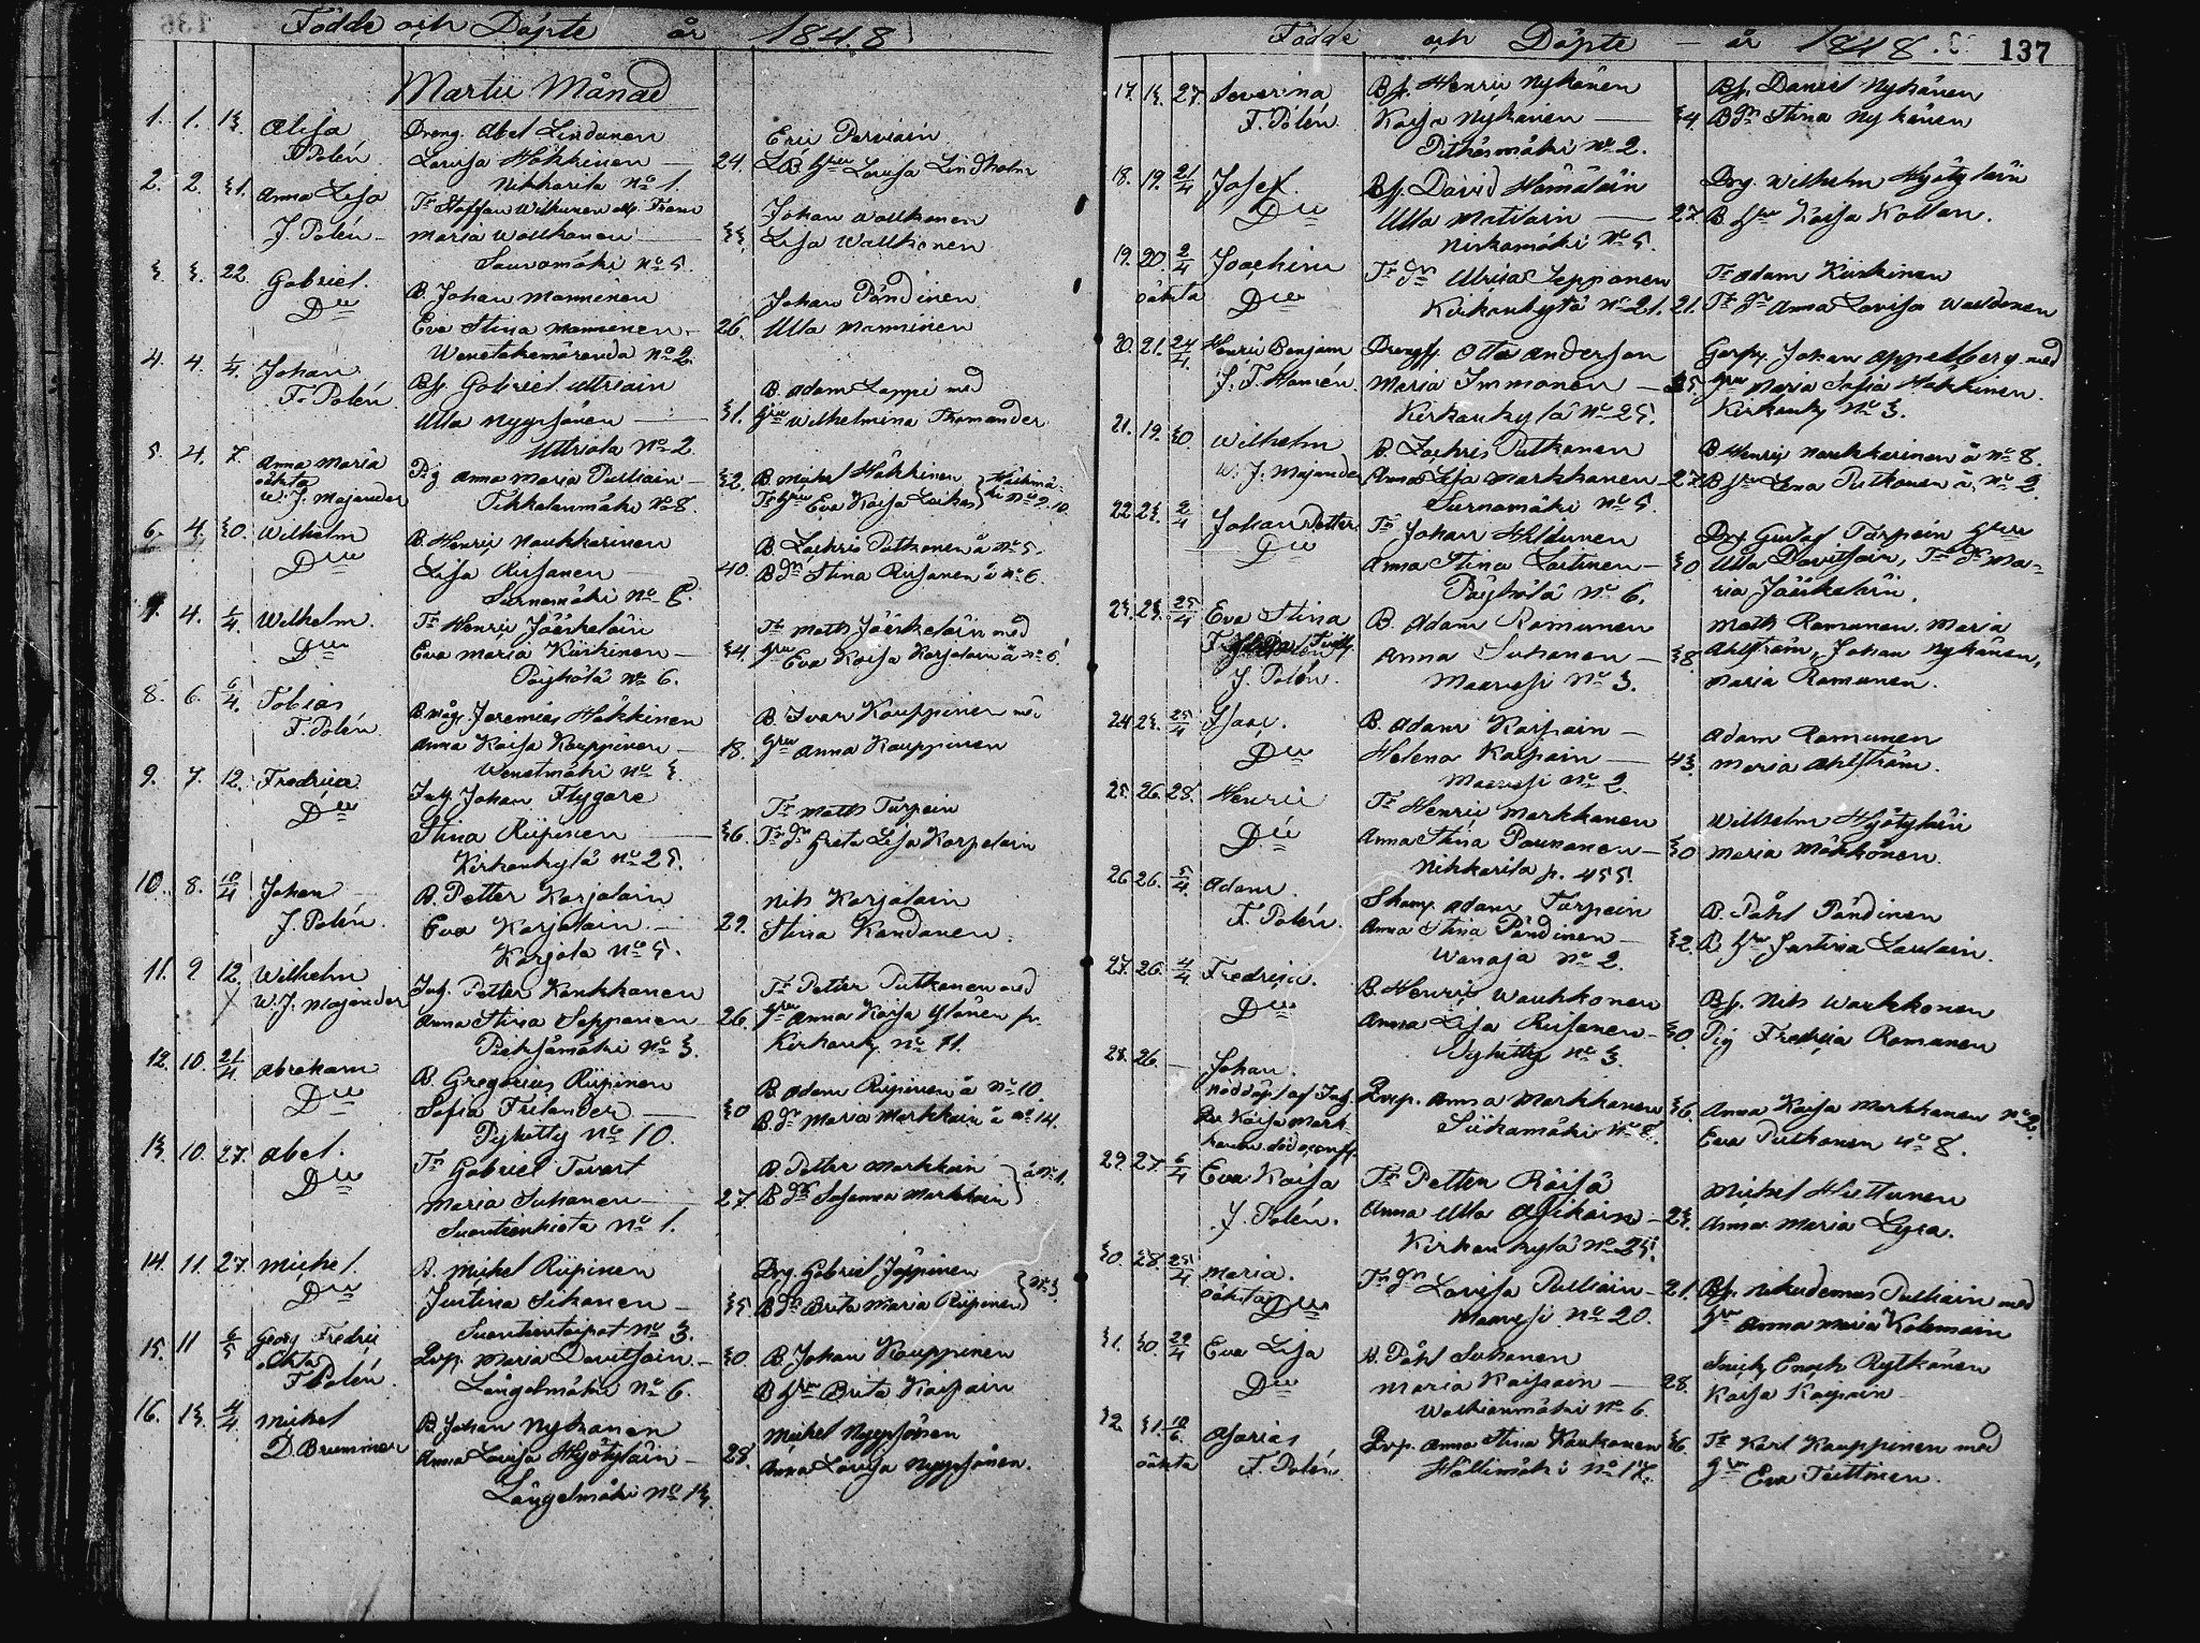 Födde och Döpte år 1848
Martii Månad
1. 1. 13. Alisa
F. Polén
Dreng. Abel Lindunen
Lovisa Häkkinen — 24.
Nikkarila No 1.
Eric Parviain
Lovisa Lindholm
2. 2. 31. Anna Lisa
J. Polén
Staffan Wilhunen
Maria Walkonen 33.
Sauvomäki No 5.
Johan Walkonen
Lisa Walkonen
3. 3. 22. Gabriel.
Do
B. Johan Manninen
Eva Stina Manninen 26.
Wenetekemäranda No 2.
Johan Pöndinen
Ulla Manninen
4. 4. 1/4. Johan
F. Polén
Bf. Gabriel Uttriain
Ulla Nyyssönen — 31.
Uttriala No 2
B. Adam Lappi med
Hru Wilhelmina Thomander
5. 4. 7. Anna Maria
oäkta
W. J. Majander
Pig. Anna Maria Pulliain 32.
Tikkalanmäki No 8.
B. Michel Häkkinen
Eva Kaisa Laikas
6. 4. 30. Wilhelm
Do
B. Henric Naukkarinen
Lisa Riisanen 40.
Surnamäki No 8.
B. Zachris Putkonen å No 5.
B Dr Stina Riisanen å No 6.
7. 4. 1/4. Wilhelm.
Do
Tr Henric Jääskeläin
Eva Maria Kiiskinen — 34.
Pöyhölä No 6.
Tr Math Jääskeläin med
Hru Eva Kaisa Karjalain å No 6.
8. 6. 6/4. Tobias
F. Polén
B. måg. Jeremias Häkkinen
Anna Kaisa Kauppinen — 18.
Wenetmäki No 3.
B. Ivar Kauppinen med
Hru Anna Kauppinen
9. 7. 12. Fredrica
Do
Inh. Johan Flygare
Stina Riipinen — 36.
Kirkonkylä No 25.
Tr Math Turpein
Tr Dr Greta Lisa Karpelain
10. 8. 10/4 Johan
J. Polén.
B. Petter Karjalain
Eva Karjalain. — 29.
Karjala No 5.
Nils Karjalain
Stina Kandanen.
11. 9 12. Wilhelm
W. J. Majander
Inh. Petter Kankkanen
Anna Stina Seppanen 26.
Pieksämäki No 3.
Tr Petter Putkonen med
Hru Anna Kaisa Ylönen fr.
Kirkonk. No 11.
12. 10. 21/4 Abraham
Do
B. Gregorius Riipinen
Sofia Frilander — 30
Pyhitty No 10.
B. Adam Riipinen å No 10.
B. Dr Maria Markkain å No 14.
13. 10. 27. Abel.
Do
Tr Gabriel Tarart
Maria Suhonen — 27.
Suontienkieta No 1.
B. Petter Markkain
B Dr Susanna Markkain } å No 1.
14. 11. 27. Michel.
Do
B. Michel Riipinen
Justina Sikanen — 35.
Suontientaipat No 3.
Drg. Gabriel Jäppinen
B Dr Brita Maria Riipinen } No 3.
15. 11 6/5 Georg Fredric
oäkta
F. Polén
Qvp. Maria Davitsain. — 30
Längelmäki No 6.
B. Johan Kauppinen
B Hru Brita Kaipain
16. 13. 4/4 Michel
D. Brummer
B. Johan Nykänen
Anna Lovisa Hyötyläin — 28.
Längelmäki No 13.
Michel Nyyssönen
Anna Lovisa Nyyssönen.
Födde och Döpte — år 1848. 137
17. 13. 27. Severina
F. Polén.
Bf. Henric Nykänen
Kaisa Nykänen — 34.
Pitkäsmäki No 2.
Bf. Daniel Nykänen
B Dr Stina Nykänen
18. 19. 21/4 Josef.
Do
Bf. David Hämäläin
Ulla Matilain — 27.
Niskamäki No 5.
Drg. Wilhelm Hyötyläin
B Hru Kaisa Kollan.
19. 20. 2/4 Joachim
oäkta Do
Tr Dr Ulrica Sepponen
Kirkonkylä No 21. 21.
Tr Adam Kiiskinen
Tr Dr Anna Lovisa Waldonen
20. 21. 24/4. Henric Benjam
J. F. Hamén.
Drengf. Otto Anderson
Maria Immonen — 25.
Kirkonkylä No 25.
Garf. Johan Appelberg med
Hru Maria Sofia Häkkinen.
Kirkonky No 3.
21. 19. 30 Wilhelm
W. J. Majander
B. Zachris Putkonen
Anna Lisa Markkanen — 27.
Surnamäki No 5.
B. Henric Naukkarinen å No 8.
B Hru Lena Putkonen å No 2.
22. 23. 2/4 Johan Petter
Do
Tr Johan Hildunen
Anna Stina Laitinen — 30
Pöyhölä No 6.
Drg. Gustaf Tarpein Hru
Ulla Davitsain, Tr Dr Ma-
ria Jääskeläin.
23. 23. 25/4 Eva Stina
J. Polén.
B. Adam Romunen
Anna Suhonen — 38
Maavesi No 3.
Math Romunen. Maria
Ahlström, Johan Nykänen,
Maria Romunen.
24. 23. 25/4 Isaac.
Do
B. Adam Kaipain —
Helena Kaipain — 43.
Maavesi No 2.
Adam Romunen
Maria Ahlström.
25. 26. 28. Henric
Do
Tr Henric Markkanen
Anna Stina Paunonen — 30
Nikkarila p. 455.
Wilhelm Hyötyläin
Maria Mökkönen.
26. 26. 5/4. Adam.
F. Polén.
Skom. Adam Tarpein
Anna Stina Pöndinen — 32.
Wanaja No 2.
B. Påhl Pöndinen
B Hru Justina Laulain.
27. 26. 4/4 Fredric.
Do
B. Henric Wauhkonen
Anna Lisa Riisanen — 30.
Pyhitty No 3.
Bf. Nils Wauhkonen
Pig Fredrica Romanen
28. 26. — Johan.
nöddöpt af Inh.
Kaisa Mark-
kanen
Qvp. Anna Markkanen 36.
Siikamäki No 8.
Anna Kaisa Markkanen No 2.
Eva Putkonen No 8.
29. 27. 6/4 Eva Kaisa
J. Polén.
Tr Petter Räisä
Anna Ulla Asikain — 23.
Kirkonkylä No 25.
Michel Hiettunen
Anna Maria Lyra.
30. 28. 25/4 Maria.
oäkta Do
Tr Dr Lovisa Pulliain — 21.
Maavesi No 20.
Bf. Nikudemus Pulliain med
Hru Anna Maria Kolemain
31. 30. 29/4 Eva Lisa
Do
B. Påhl Suhonen
Maria Kaipain — 28.
Walkianmäki No 6.
Enoch Rytkönen
Kaisa Kaipain
32. 31. 10/6. Asarias
oäkta F. Polén
Qvp. Anna Stina Kaukonen 36.
Hällinmäki No 17.
Tr Karl Kauppinen med
Hru Eva Teittinen.